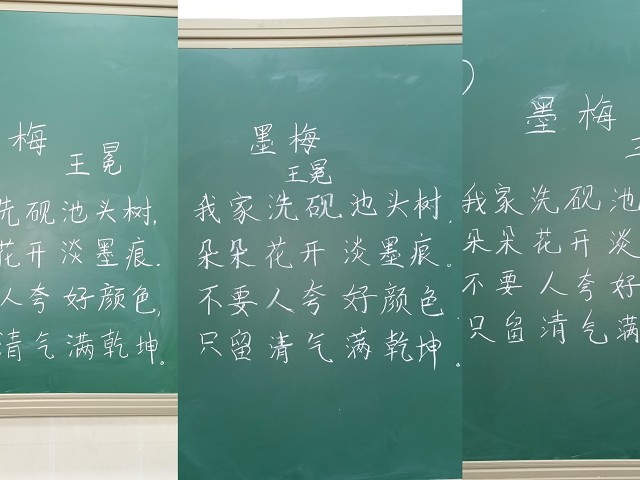 梅
王冕
洗砚池头树,
花开淡墨痕.
人夸好颜色,
清气满乾坤。
墨梅
王冕
我家洗砚池头树,
朵朵花开淡墨痕。
不要人夸好颜色
只留清气满乾坤。
)
墨梅
我家洗砚池
朵朵花开淡
不要人夸好
只留清气满